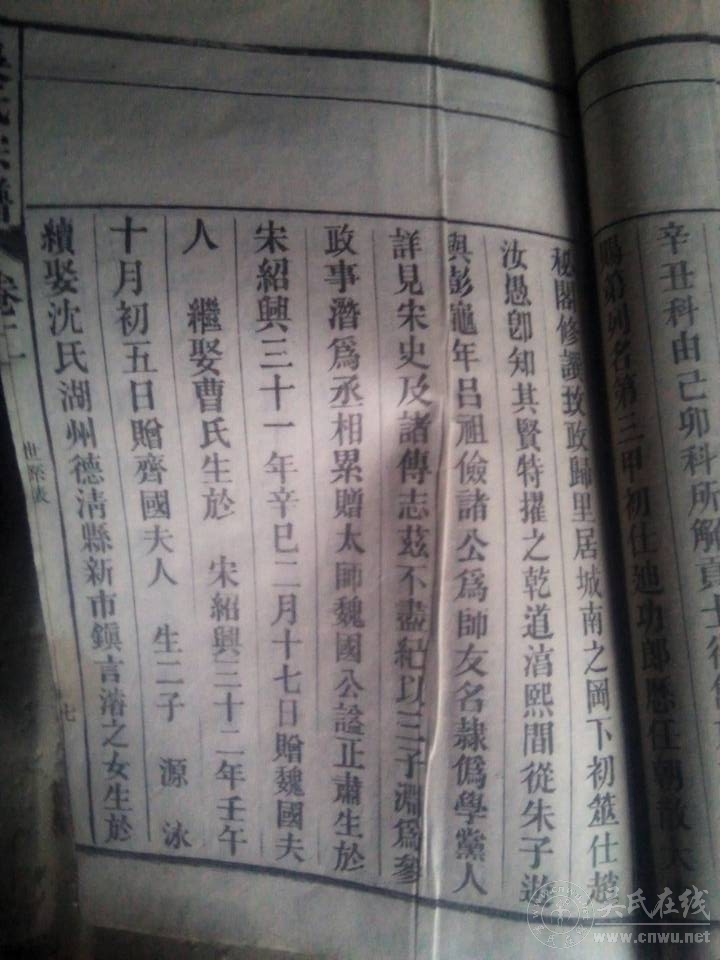 辛丑科由己卯科所解貢士
賜第列名第三甲初仕迪功郎歷任朝散大
秘閣修譔致政歸里居城南之岡下初筮仕趙
汝愚卽知其賢特擢之乾道淳熙間從朱子遊
與彭龜年呂祖儉諸公爲師友名隸僞學黨人
詳見宋史及諸傳志茲不盡紀以三子淵爲參
政事潛爲丞相累贈太師魏國公謚正肅生於
宋紹興三十一年辛巳二月十七日贈魏國夫
人 繼娶曹氏生於 宋紹興三十二年壬午
十月初五日贈齊國夫人 生二子 源 泳
續娶沈氏湖州德淸縣新市鎭言濬之女生於
吳氏宗譜 卷二
世系表
七
吴氏在线
www.cnwu.net